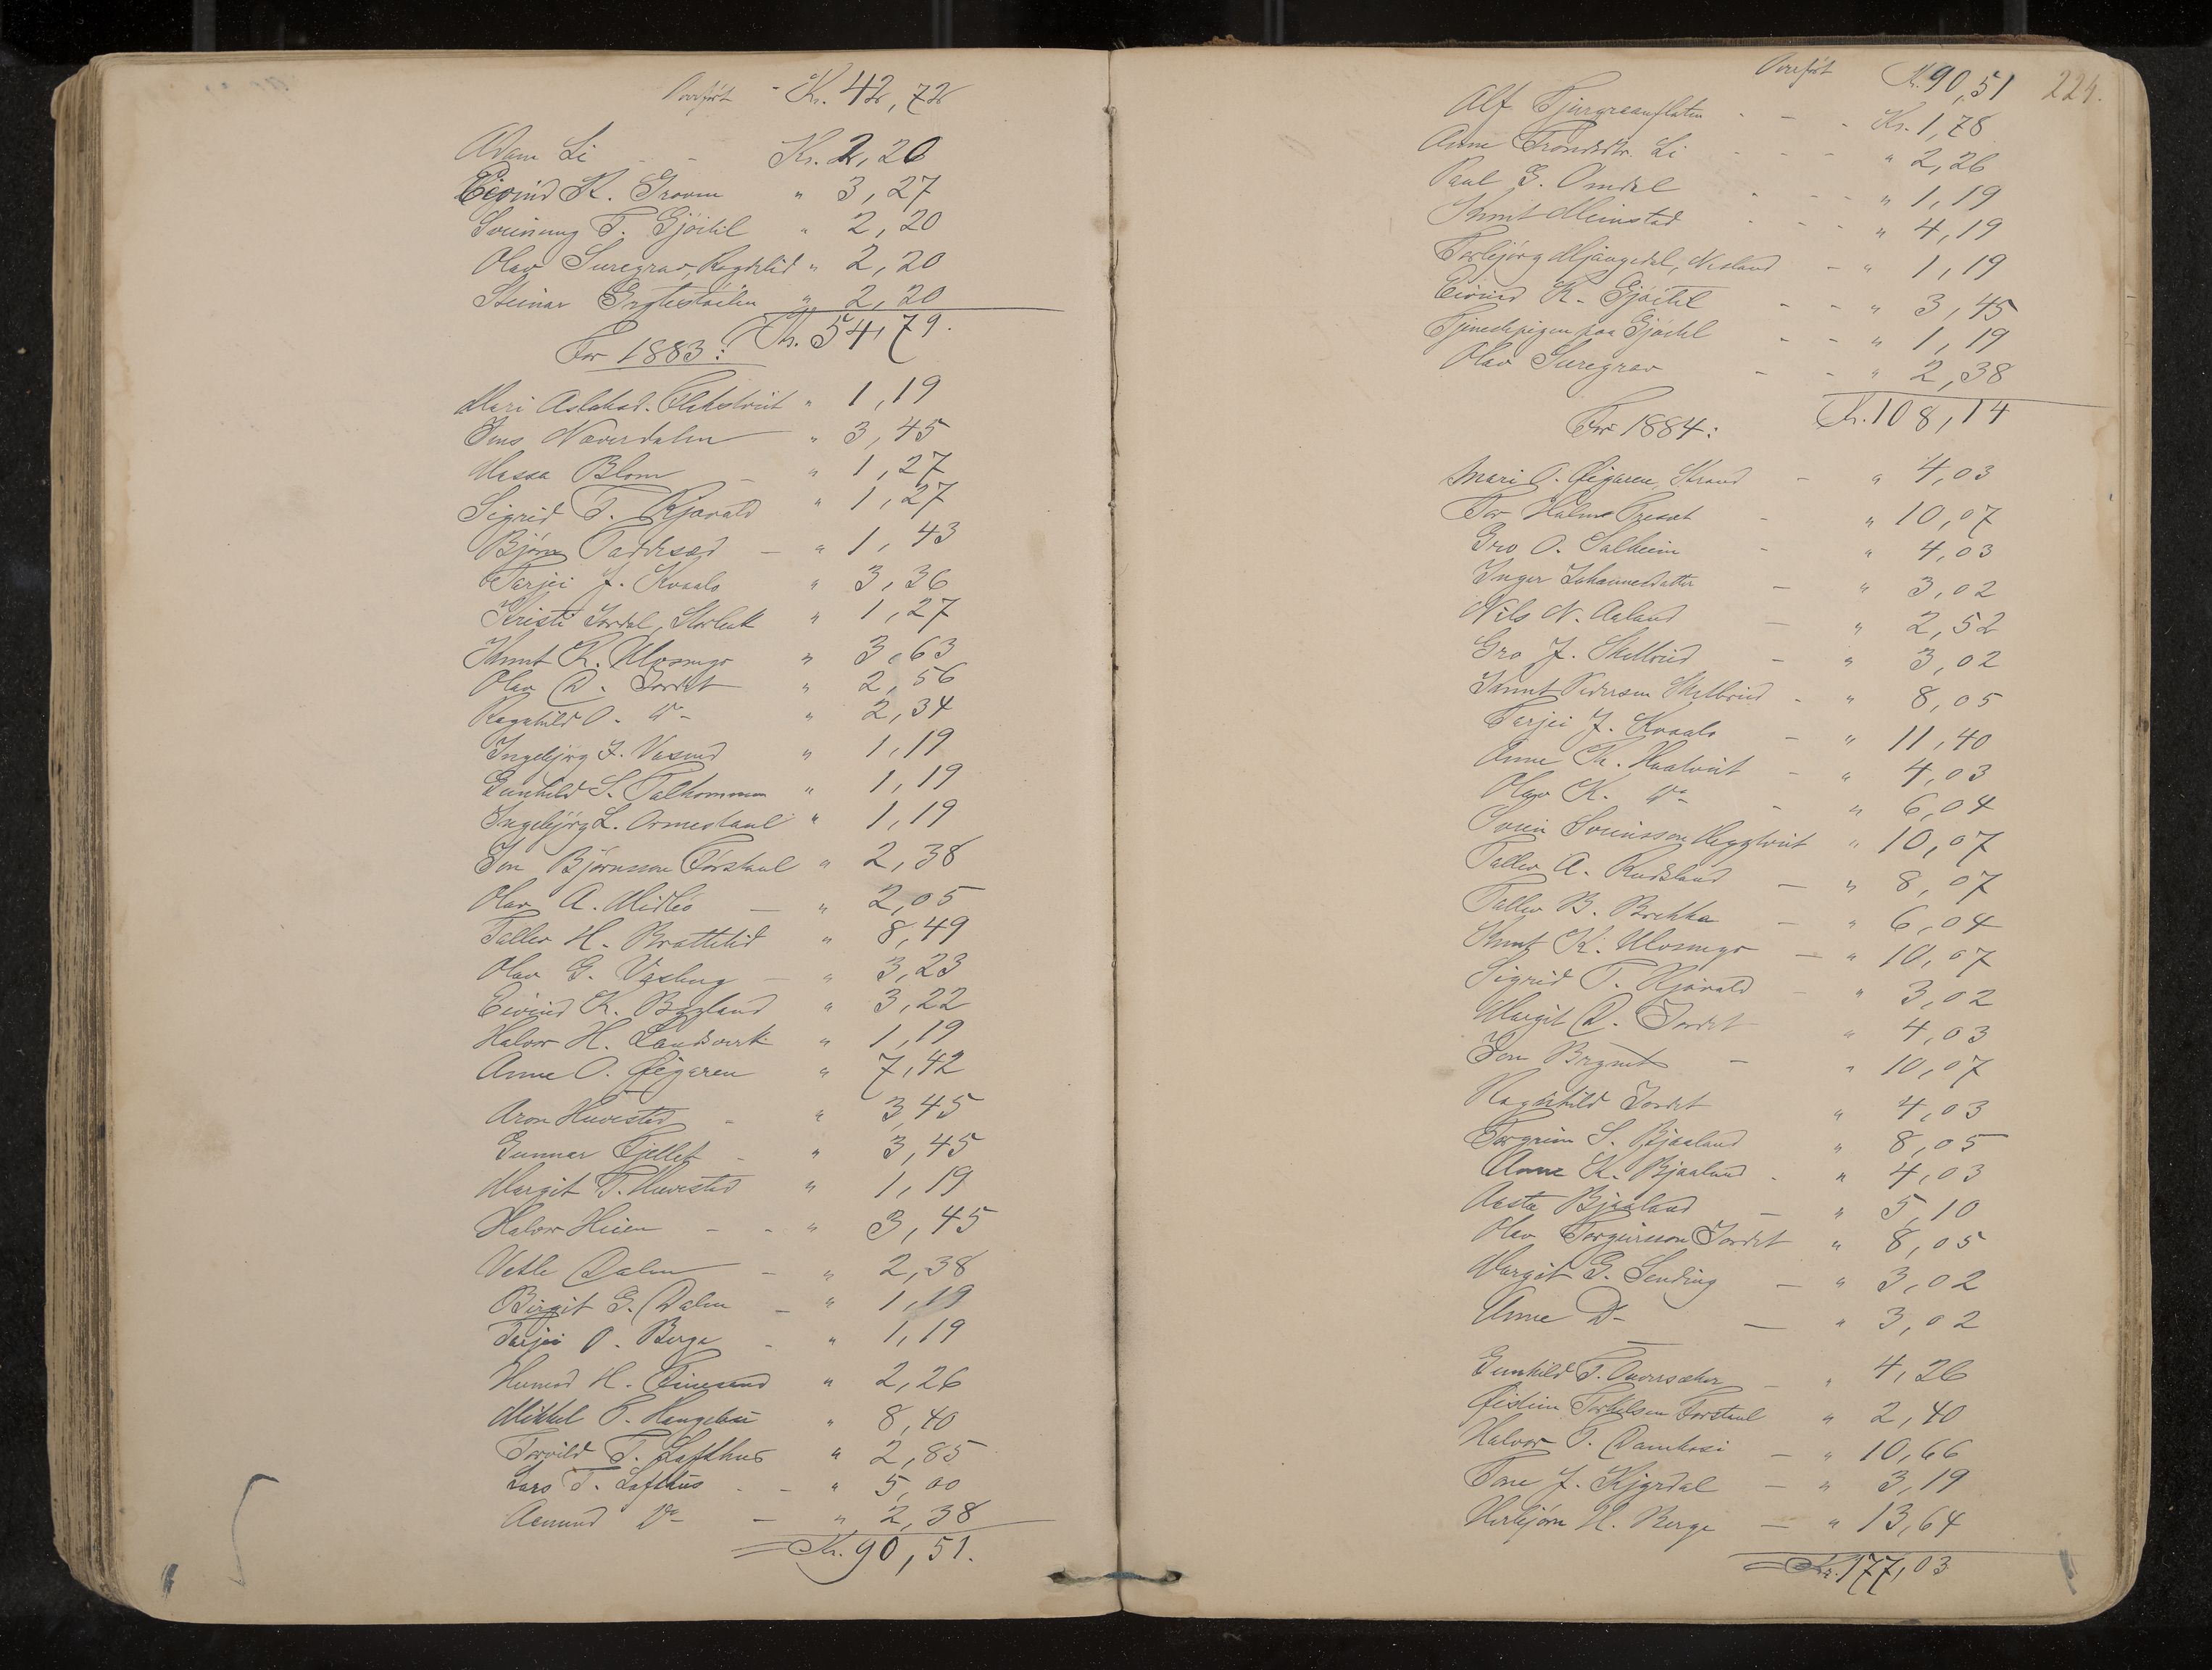 Overført - Kr. 42,72
Adam Li - - Kr. 2,20
Eivind K. Groven " 3,27
Sveinung T. Gjöitil " 2,20
Olav Suregrav, Ragdelid " 2,20
Steinar Grytestøilen " 2,20
Kr. 54,79.
For 1883:
Mari Aslaksd. Flekstveit " 1,19
Jens Næverdalen " 3,45
Hassa Blom - " 1,27
Sigrid T. Kjøvald " 1,27
Bjørn Taddesød - " 1,43
Tarjei J. Kvaalo " 3,36
Kristi Jordal, Storlauk " 1,27
Knut K. Ulosmyr " 3,63
Olav D. Jordet " 2,56
Ragnhild O. Do " 2,34
Ingebjørg J. Vasend " 1,19
Gunhild S. Talhommen " 1,19
Ingebjørg L. Ormestaul " 1,19
Jon Bjørnsson Førstaul " 2,38
Olav A. Midbø - " 2,05
Tallev H. Brattelid " 8,49
Olav G. Vashug - " 3,23
Eivind K. Byland " 3,22
Halvor H. Landsverk " 1,19
Anne O. Øigaren " 7,42
Aron Huvestad - " 3,45
Gunnar Fjellet - " 3,45
Margit T. Huvestad " 1,19
Halvor Heien - - " 3,45
Vetle Dalen - " 2,38
Birgit G. Dalen - " 1,19
Tarjei O. Berge - " 1,19
Hæmod H. " 2,26
Mikkel T. Haugebu " 8,40
Torvild T. Lofthus " 2,85
Lars T. Lofthus - - " 5,00
Aamund Do - " 2,38
Kr. 90,51.
Overført Kr. 90,51 224.
Alf - - - Kr. 1,78
Anne Trondsdtr. Li - - - " 2,26
Paul G. Omdal - - - " 1,19
Knut Meinstad - - - " 4,19
Torbjörg Mjaugedal, Nesland - " 1,19
Eivind K. Gjöitil - - " 3,45
Tjenestepigen paa Gjöitil - - " 1,19
Olav Suregrav - - " 2,38
Kr. 108,14
For 1884:
Mari O. Øigaren, Strand - " 4,03
Tor Halvors Træsæt - " 10,07
Gro O. Salheim - " 4,03
Inger Johannesdatter - " 3,02
Nils N. Aaland - " 2,52
Gro J. Skelbreid - " 3,02
Knut Pedersen Skelbreid - " 8,05
Tarjei J. Kvaalo - " 11,40
Anne K. Haatveit - " 4,03
Olav K. Do - " 6,04
Svein Sveinsson Heggtveit " 10,07
Tallev A. Rudsland - " 8,07
Tallev B. Brekka - " 6,04
Knut K. Ulosmyr - " 10,07
Sigrid T. Kjøvald - " 3,02
Margit D. Jordet " 4,03
Jon Brynet - " 10,07
Ragnhild Jordet " 4,03
Torgrim S. Bjaaland " 8,05
Anne K. Bjaaland - " 4,03
Aasta Bjaaland - " 5,10
Olav Torgeirsson Jordet " 8,05
Margit G. Sending - " 3,02
Anne Do - " 3,02
Gunhild T. - " 4,26
Øistein Torkelsen Førstaul " 2,40
Halvor T. Damkasi - " 10,66
Tone J. Kjyrdal - " 3,19
Herbjørn H. Berge - " 13,64
Kr. 177,03